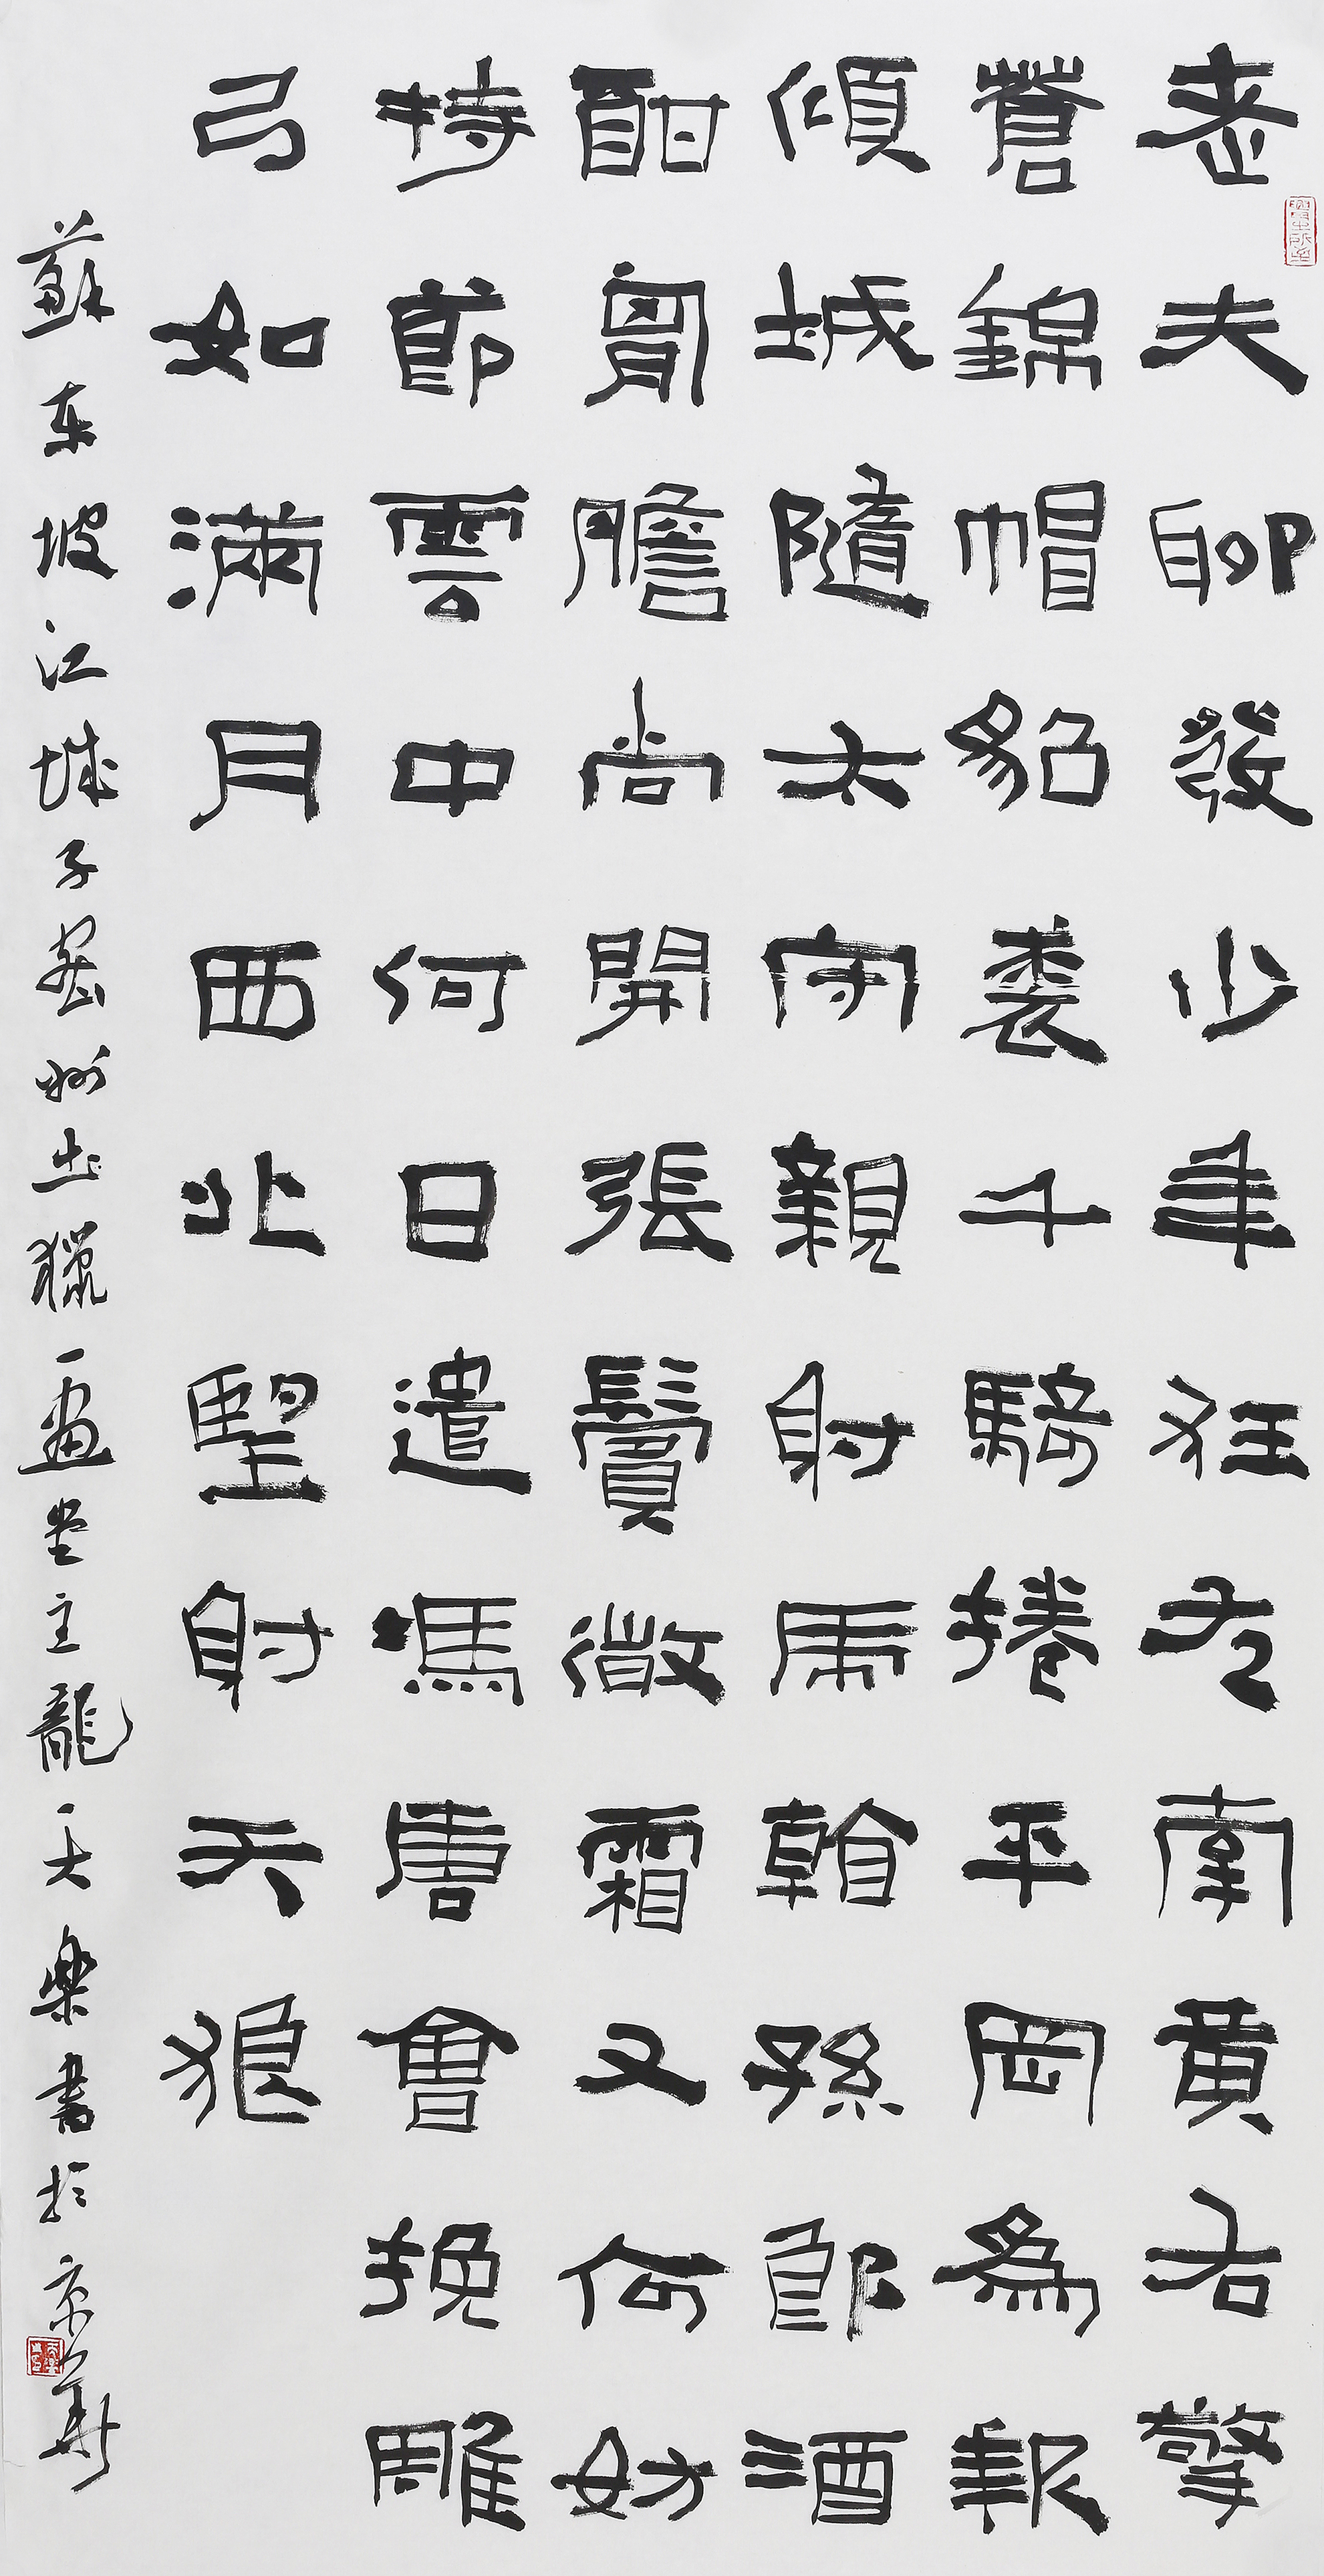 老夫聊發少年狂左牽黃右擎
蒼錦帽貂裘千騎捲平岡為報
傾城隨太守親射虎看孫郎酒
酣胸膽尚開張鬢微霜又何妨
持節雲中何日遣馮唐會挽雕
弓如滿月西北望射天狼
蘇東坡江城子密州出獵一畫堂主龍天樂書於京華